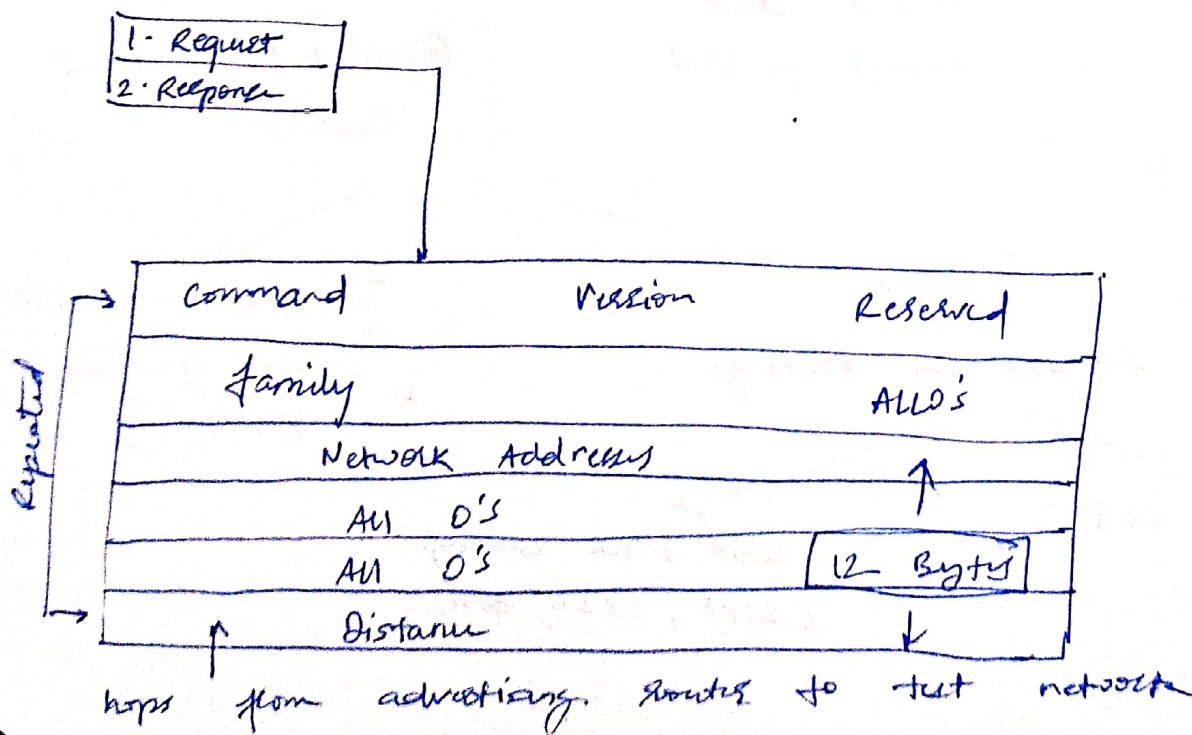 1. Request
2. Response
Command Version Reserved
Repeated
family ALL 0's
Network Addresses
All 0's
All 0's 12 Bytes
Distance
hops from advertising router to test network